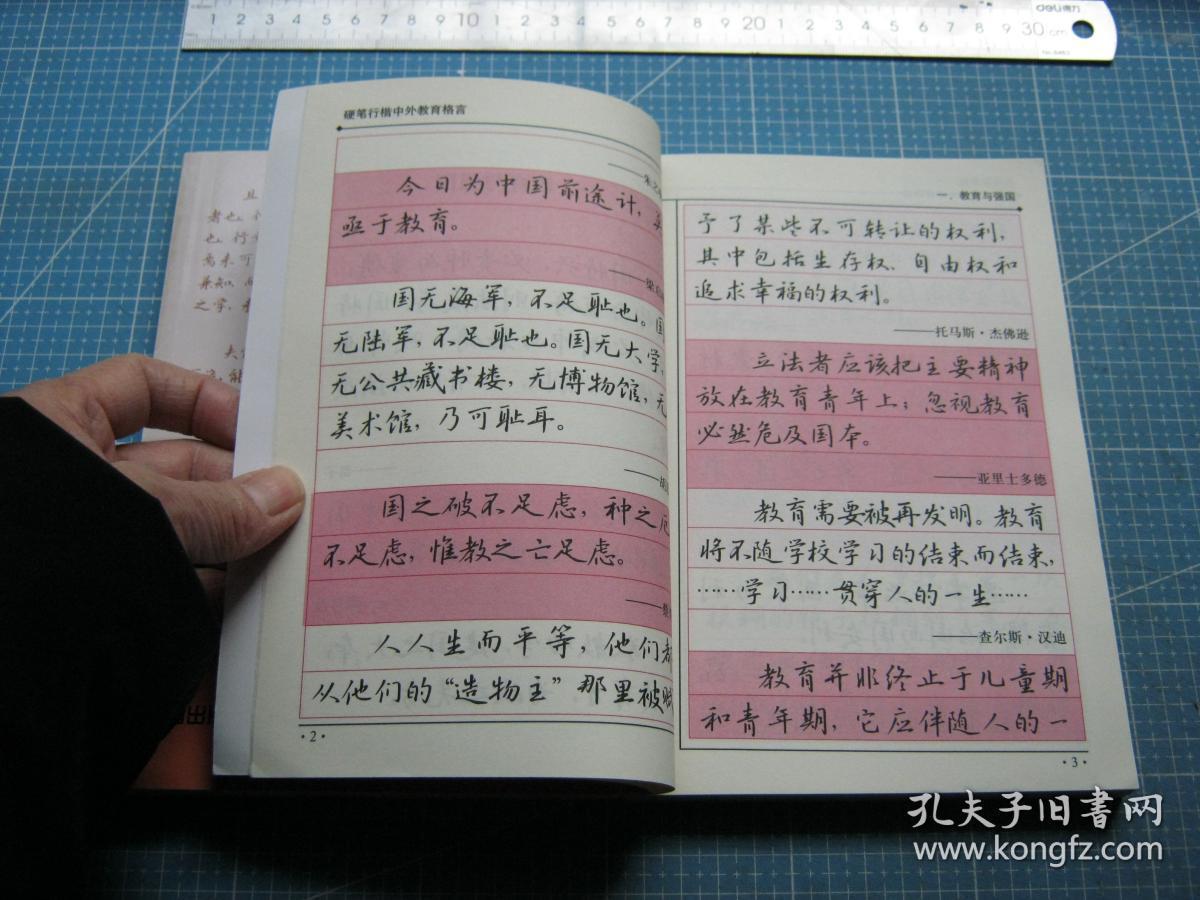 0 1 2 3 4 5 6 7 8 9 10 1 2 3 4 5 6 7 8 9 20 1 2 3 4 5 6 7 8 9 30 cm
deli得力
硬笔行楷中外教育格言
今日为中国前途计，
亟于教育。
国无海军，不足耻也。国
无陆军，不足耻也。国无大学，
无公共藏书楼，无博物馆，无
美术馆，乃可耻耳。
国之破不足虑，种之
不足虑，惟教之亡足虑。
人人生而平等，他们都
从他们的“造物主”那里被赋
·2·
一、教育与强国
予了某些不可转让的权利，
其中包括生存权、自由权和
追求幸福的权利。
——托马斯·杰佛逊
立法者应该把主要精神
放在教育青年上；忽视教育
必然危及国本。
——亚里士多德
教育需要被再发明。教育
将不随学校学习的结束而结束，
……学习……贯穿人的一生……
——查尔斯·汉迪
教育并非终止于儿童期
和青年期，它应伴随人的一
·3·
孔夫子旧书网
www.kongfz.com